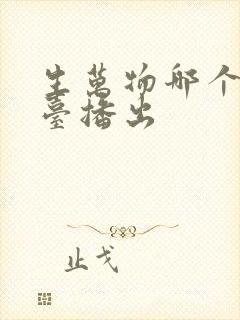 生萬物哪个
臺播出
止戈